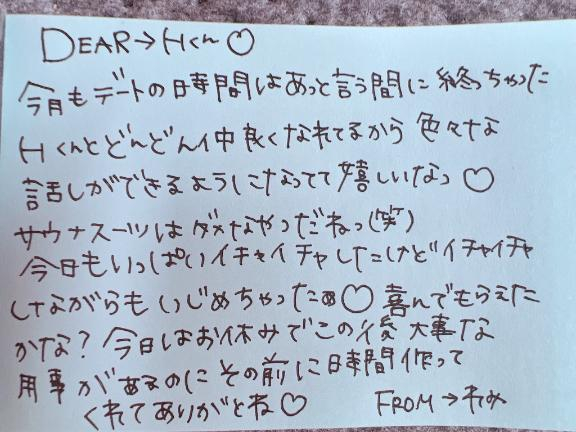 DEAR→Hくん♡
今月もデートの時間はあっと言う間に終っちゃった
Hくんとどんどん仲良くなれてるから 色々な
話しができるようになってて嬉しいなっ♡
サウナスーツはダメなやつだねっ(笑)
今日もいっぱいイチャイチャしたけどイチャイチャ
しながらも いじめちゃったぁ♡ 喜んでもらえた
かな? 今日はお休みでこの後 大事な
用事があるのに その前に時間作って
くれてありがとね♡ FROM→れみ